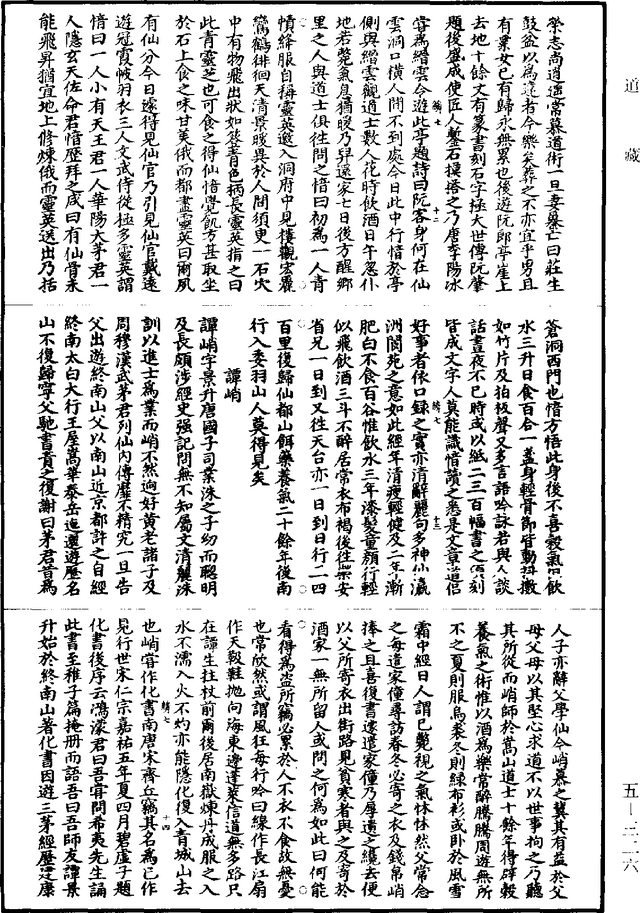 道藏
榮志尚逍遙常慕道術一旦妻暴亡曰莊生
鼓盆以為達者今樂矣葬之不亦宜乎男且
有業女已有歸永無累也後遊阮郎亭崖上
去地十餘丈有篆書刻石字極大世傳阮肇
題後盛成使匠人鑿石摸搨之乃唐李陽冰
嘗為縉雲令遊此亭題詩曰阮客身何在仙
雲洞口橫人間不到處今日此中行愔於亭
側與縉雲觀道士數人花時飲酒日午忽仆
地若斃氣息猶暖乃舁還家七日後方醒鄉
里之人與道士俱往問之愔曰初為一人青
幘絳服自稱靈英邀入洞府中見樓觀宏麗
鸞鶴徘徊天清景暖異於人間須臾一石穴
中有物飛出狀如簽青色柄長靈英指之曰
此青靈芝也可食之得仙愔覺飢方甚取坐
於石上食之味甘美俄而都盡靈英曰爾夙
有仙分今日遽得見仙官乃引見仙官戴遠
遊冠霞帔羽衣三人文武侍從極多靈英謂
愔曰一人小有天王君一人華陽大茅君一
人隱玄天佐命君愔歷拜之咸曰有仙骨未
能飛昇猶宜地上修煉俄而靈英送出乃括
蒼洞西門也愔方悟此身後不喜穀氣但飲
水三升日食百合一盞身輕骨節皆動抖擻
如竹片及拍板聲又多言語吟詠若與人談
話晝夜不已時或以紙二三百幅書之頃刻
皆成文字人莫能識愔讀之悉是文章道信
好事者依口錄之實亦清辭麗句多神仙瀛
洲閬苑之意如此經年清瘦輕健及二年漸
肥白不食百合惟飲水三年漆髮童顏行輕
似飛飲酒三斗不醉居常衣布褐後往樂安
省兄一日到又往天台亦一日到日行二四
百里復歸仙都山餌藥養氣二十餘年後南
行入委羽山人莫得見矣
譚峭
譚峭字景升唐國子司業洙之子幼而聰明
及長頗涉經史強記問無不知屬文清麗洙
訓以進士為業而峭不然逈好黃老諸子及
周穆漢武茅君列仙內傳靡不精究一旦告
父出遊終南山父以南山近京都許之自經
終南太白大行王屋嵩華泰岳迤邐遊歷名
山不復歸寧父馳書責之復謝曰茅君昔為
人子亦辭父學仙今峭慕之冀其有益於父
母父母以其堅心求道不以世事拘之乃聽
其所從而峭師於嵩山道士十餘年得辟穀
養氣之術惟以酒為樂常醉騰騰周遊無所
不之夏則服烏裘冬則綠布衫或臥於風雪
霜中經日人謂已斃視之氣怵怵然父常念
之每遣家僮尋訪春冬必寄之衣及錢帛峭
捧之且喜復書遽遣家僮乃厚遺之纔去便
以父所寄衣出街路見貧寒者與之及寄於
酒家一無所留人或問之何為如此曰何能
看得為盜所竊必累於人不衣不食故無憂
也常欣然或謂風狂每行吟曰線作長江扇
作天靸鞋拋向海東邊蓬萊信道無多路只
在譚生拄杖前爾後居南嶽煉丹成服之入
水不濡入火不灼亦能隱化復入青城山去
也峭嘗作化書南唐宋齊丘竊其名為己作
見行世宋仁宗嘉祐五年夏四月碧虛子題
化書後序云鴻濛君曰吾嘗問希夷先生誦
此書至稚子篇掩冊而語吾曰吾師友譚景
升始於終南山著化書因遊三茅經歷建康
五—三二六